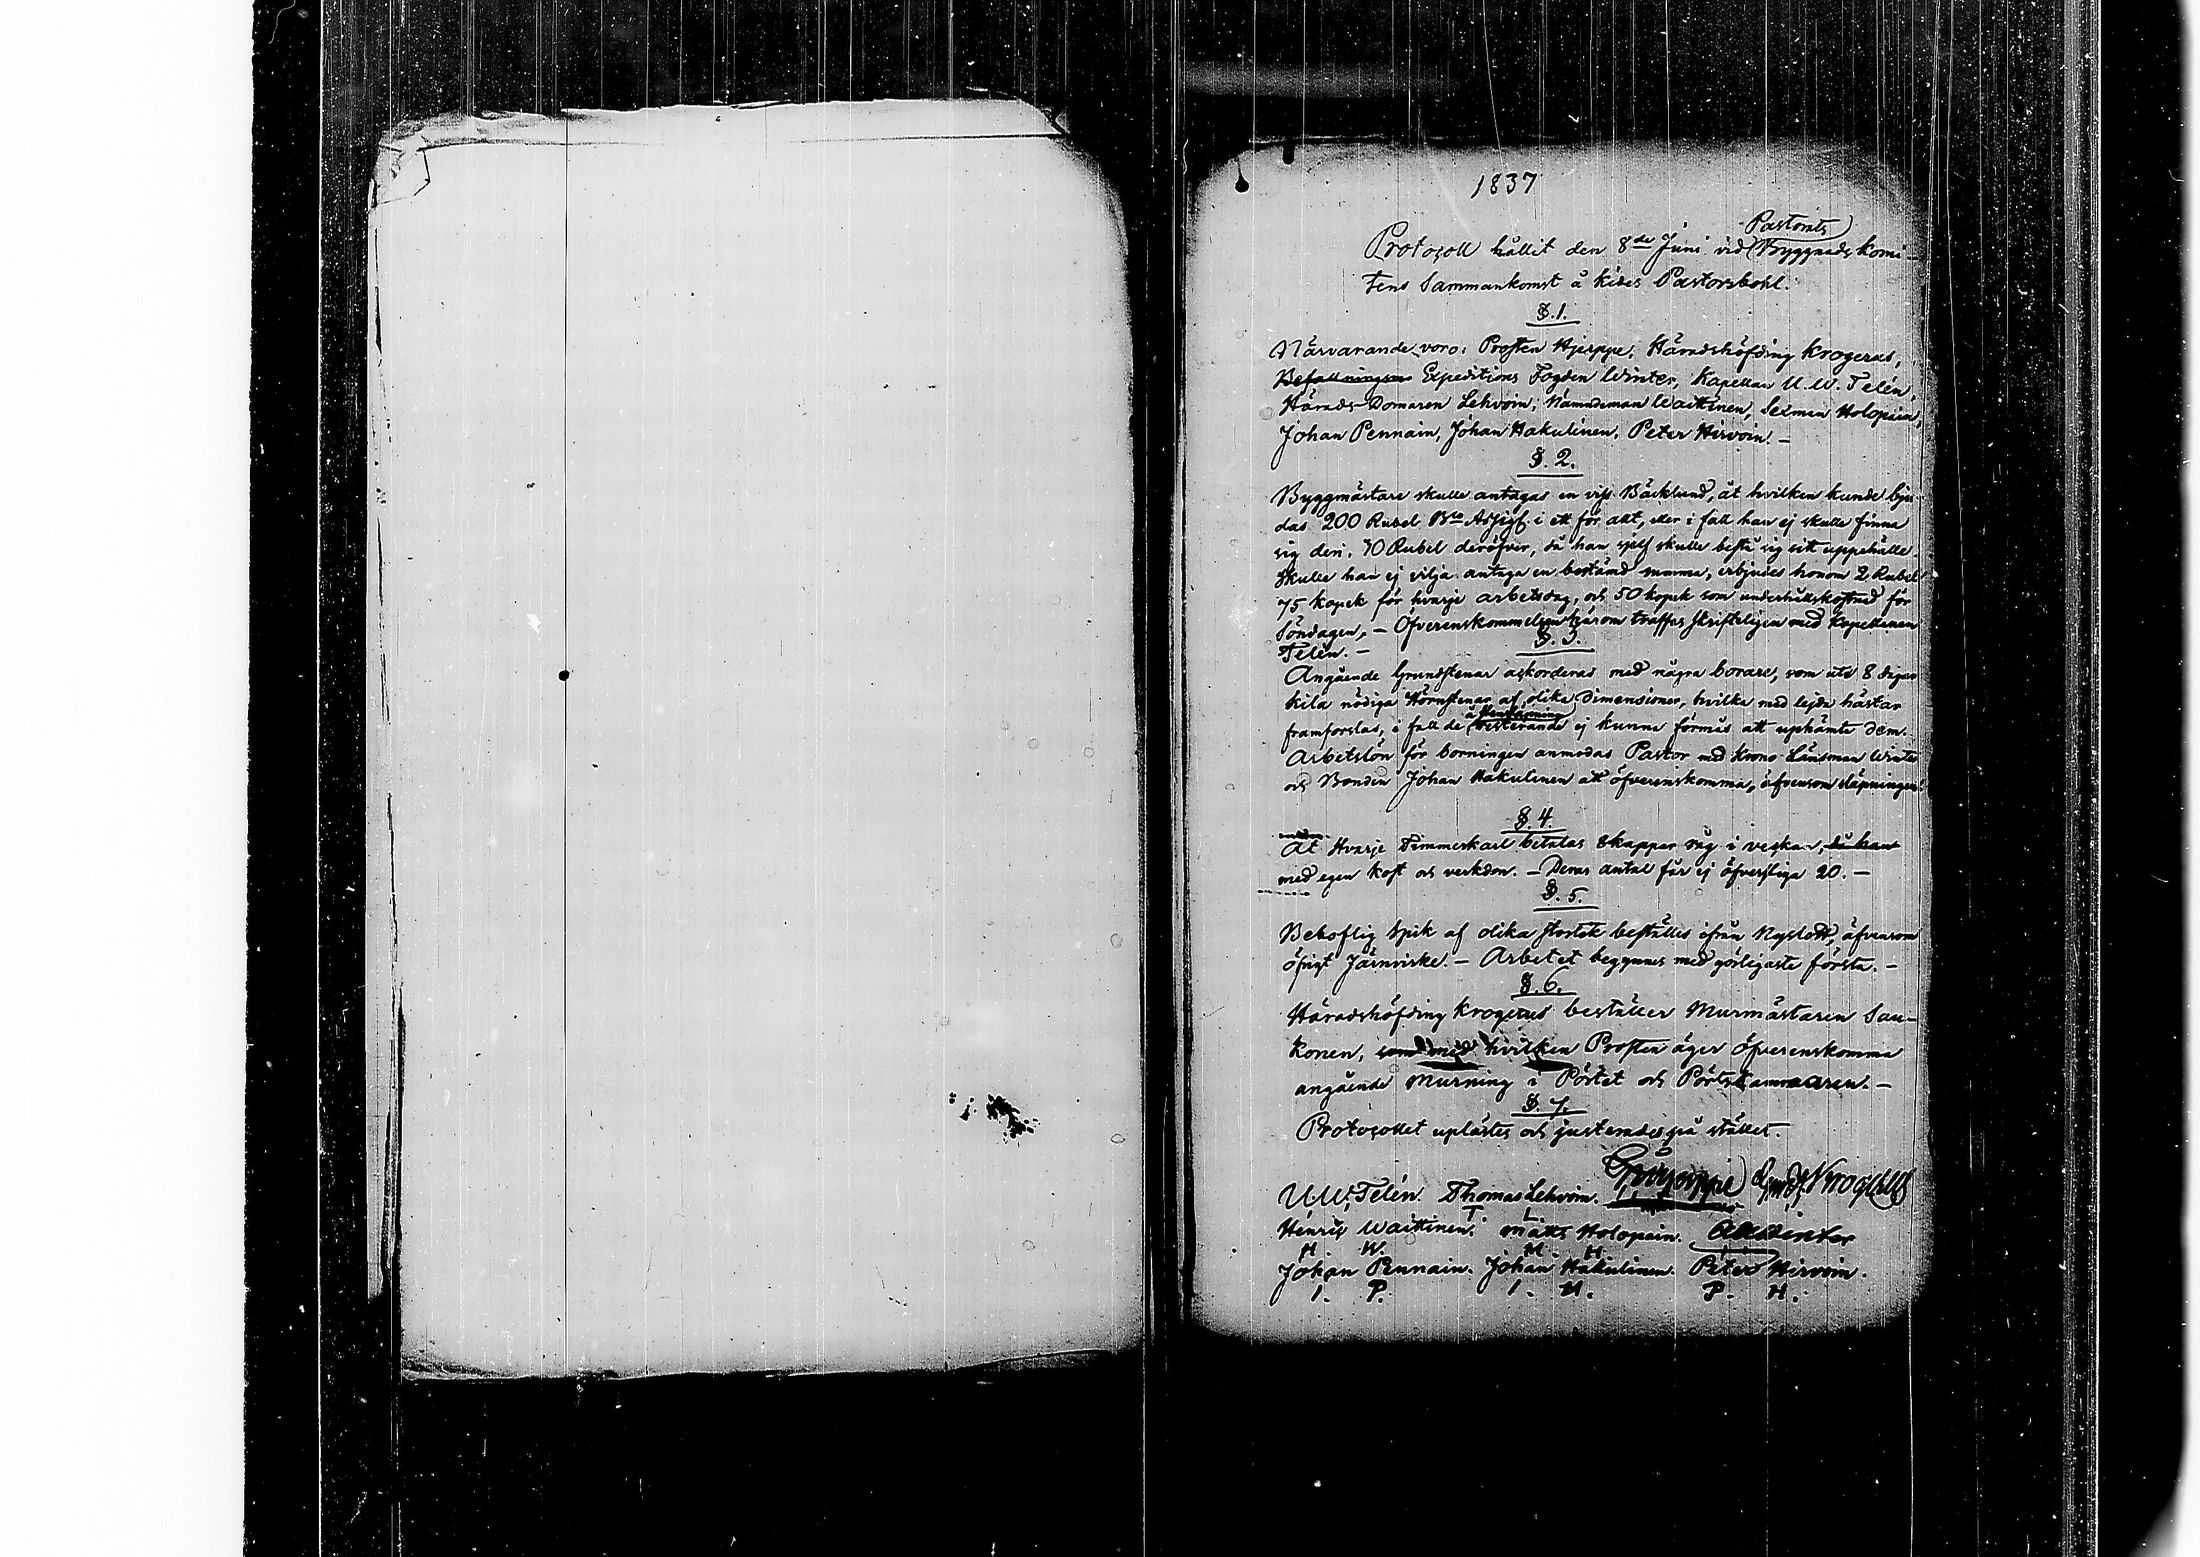 1837
Pastorats
Protocoll hållit den 8de Juni vid Byggnads komi-
tens Sammankomst å Kides Pastorsbohl.
§.1.
Närvarande voro: Prosten Hjerppe, Häradshöfding Krogerus,
Befallningsm Expeditions Fogden Winter, Kapellan U.W. Telén,
Härads Domaren Lehvoin, Nämndeman Waittinen, Sexman Holopain,
Johan Pennain, Johan Hakulinen, Peter Hirvoin. -
§.2.
Byggmästare skulle antagas en viss Bäcklund, åt hvilken kunde bju-
das 200 Rubel Bco Assigf. i ett för allt, eller i fall han ej skulle finna
sig deri, 70 Rubel deröfver, då han sjelf skulle bestå sig sitt uppehälle.
Skulle han ej vilja antaga en bestämd summa, erbjudes honom 2 Rubel
75 kopek för hvarje arbetsdag, och 50 kopek som underhållskostnad för
Söndagen. - Öfverenskommelsen härom träffas skrifteligen med Kapellanen
Telén. -
§.3.
Angående Grundstenar ackorderas med några borare, som uti 8 dagar
kila nödiga Hörnstenar af olika Dimensioner, hvilka med lejda hästar
framforslas, i fall de resterande ej kunna förmås att uphämta dem.
Arbetslön för borningen anmodas Pastor med Krono Länsman Winter
och Bonden Johan Hakulinen att öfverenskomma, äfvensom släpningen.
§.4.
At Hvarje Timmerkarl betalas 8 kappar råg i veckan, då han
med egen kost och verkdon. - Deras antal får ej öfverstiga 20. -
§.5.
Behoflig Spik af olika storlek beställes ifrån Nyslott, äfvensom
öfrigt Järnvirke. - Arbetet begynnes med görligaste första. -
§.6.
Häradshöfding Krogerus beställer Murmästaren Sau-
konen, som med hvilken Prosten äger öfverenskomma
angående Murning i Pörtet och Pörtskammaren. -
§.7.
Protocollet uplästes och justerades på stället.
Hjerppe Krogerus
U.W. Telén. Thomas Lehvoin.
T. L.
Henric Waittinen. Matts Holopain. Winter
H. W. M. H.
Johan Pennain. Johan Hakulinen. Peter Hirvoin.
I. P. I. H. P. H.